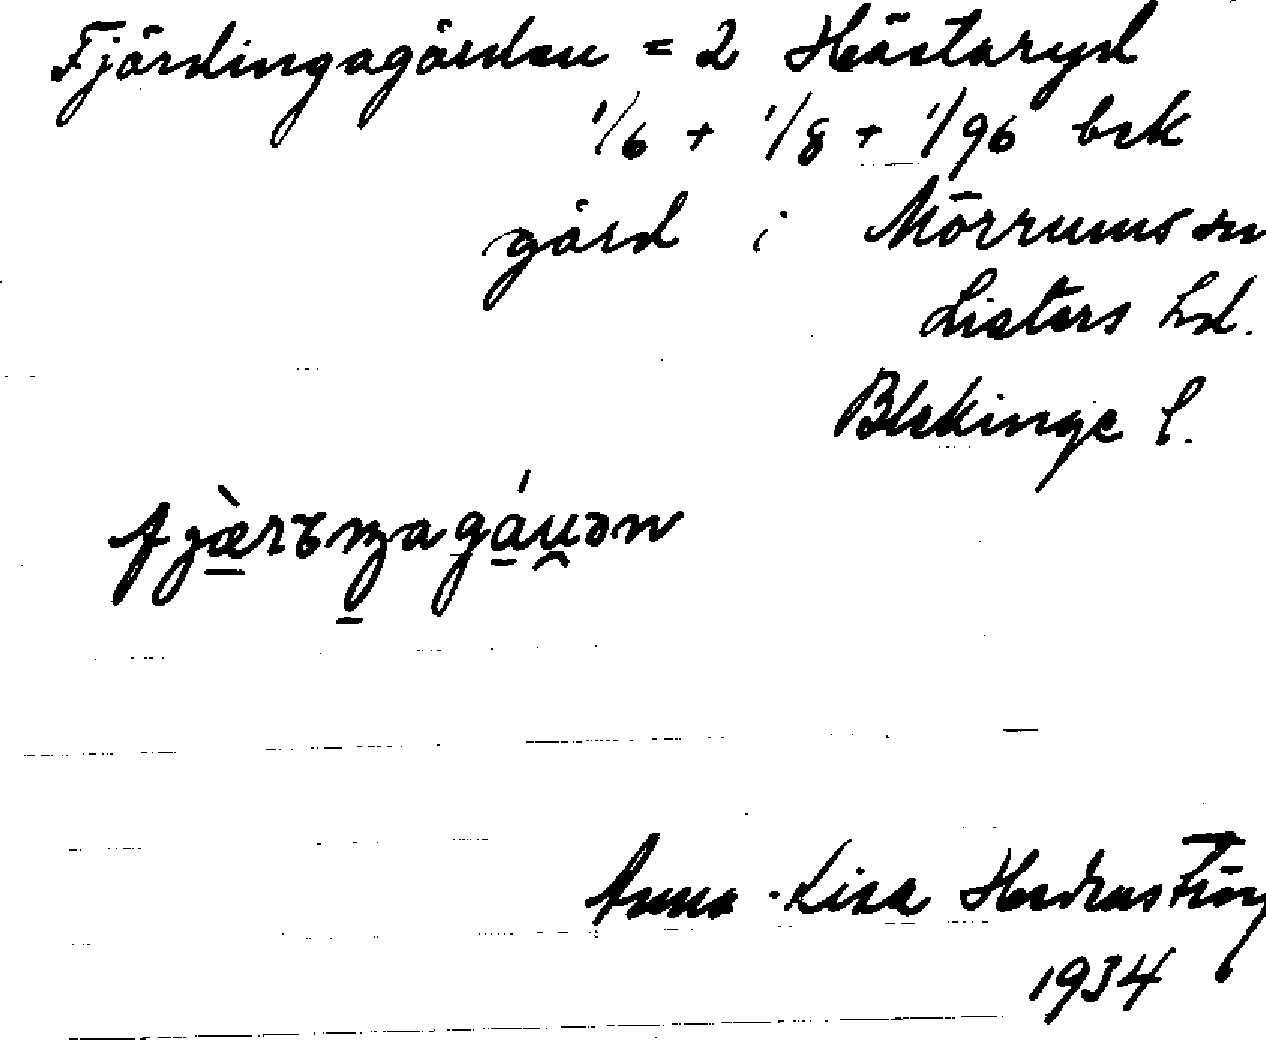 Fjärdingagården = 2 Hästaryd
1/6 + 1/8 + 1/96 bek
gård i Mörrums sn
Listers hd.
Blekinge l.
Anna-Lisa Hedenström
1934